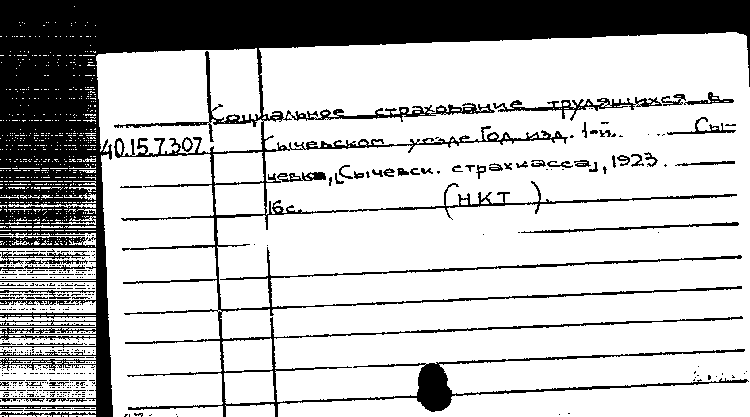 Социальное страхование трудящихся в
40.15.7.307. Сычевском уезде. Год изд. 1-й. Сы-
чевка, [Сычевск. страхкасса], 1923.
16 с. (НКТ).